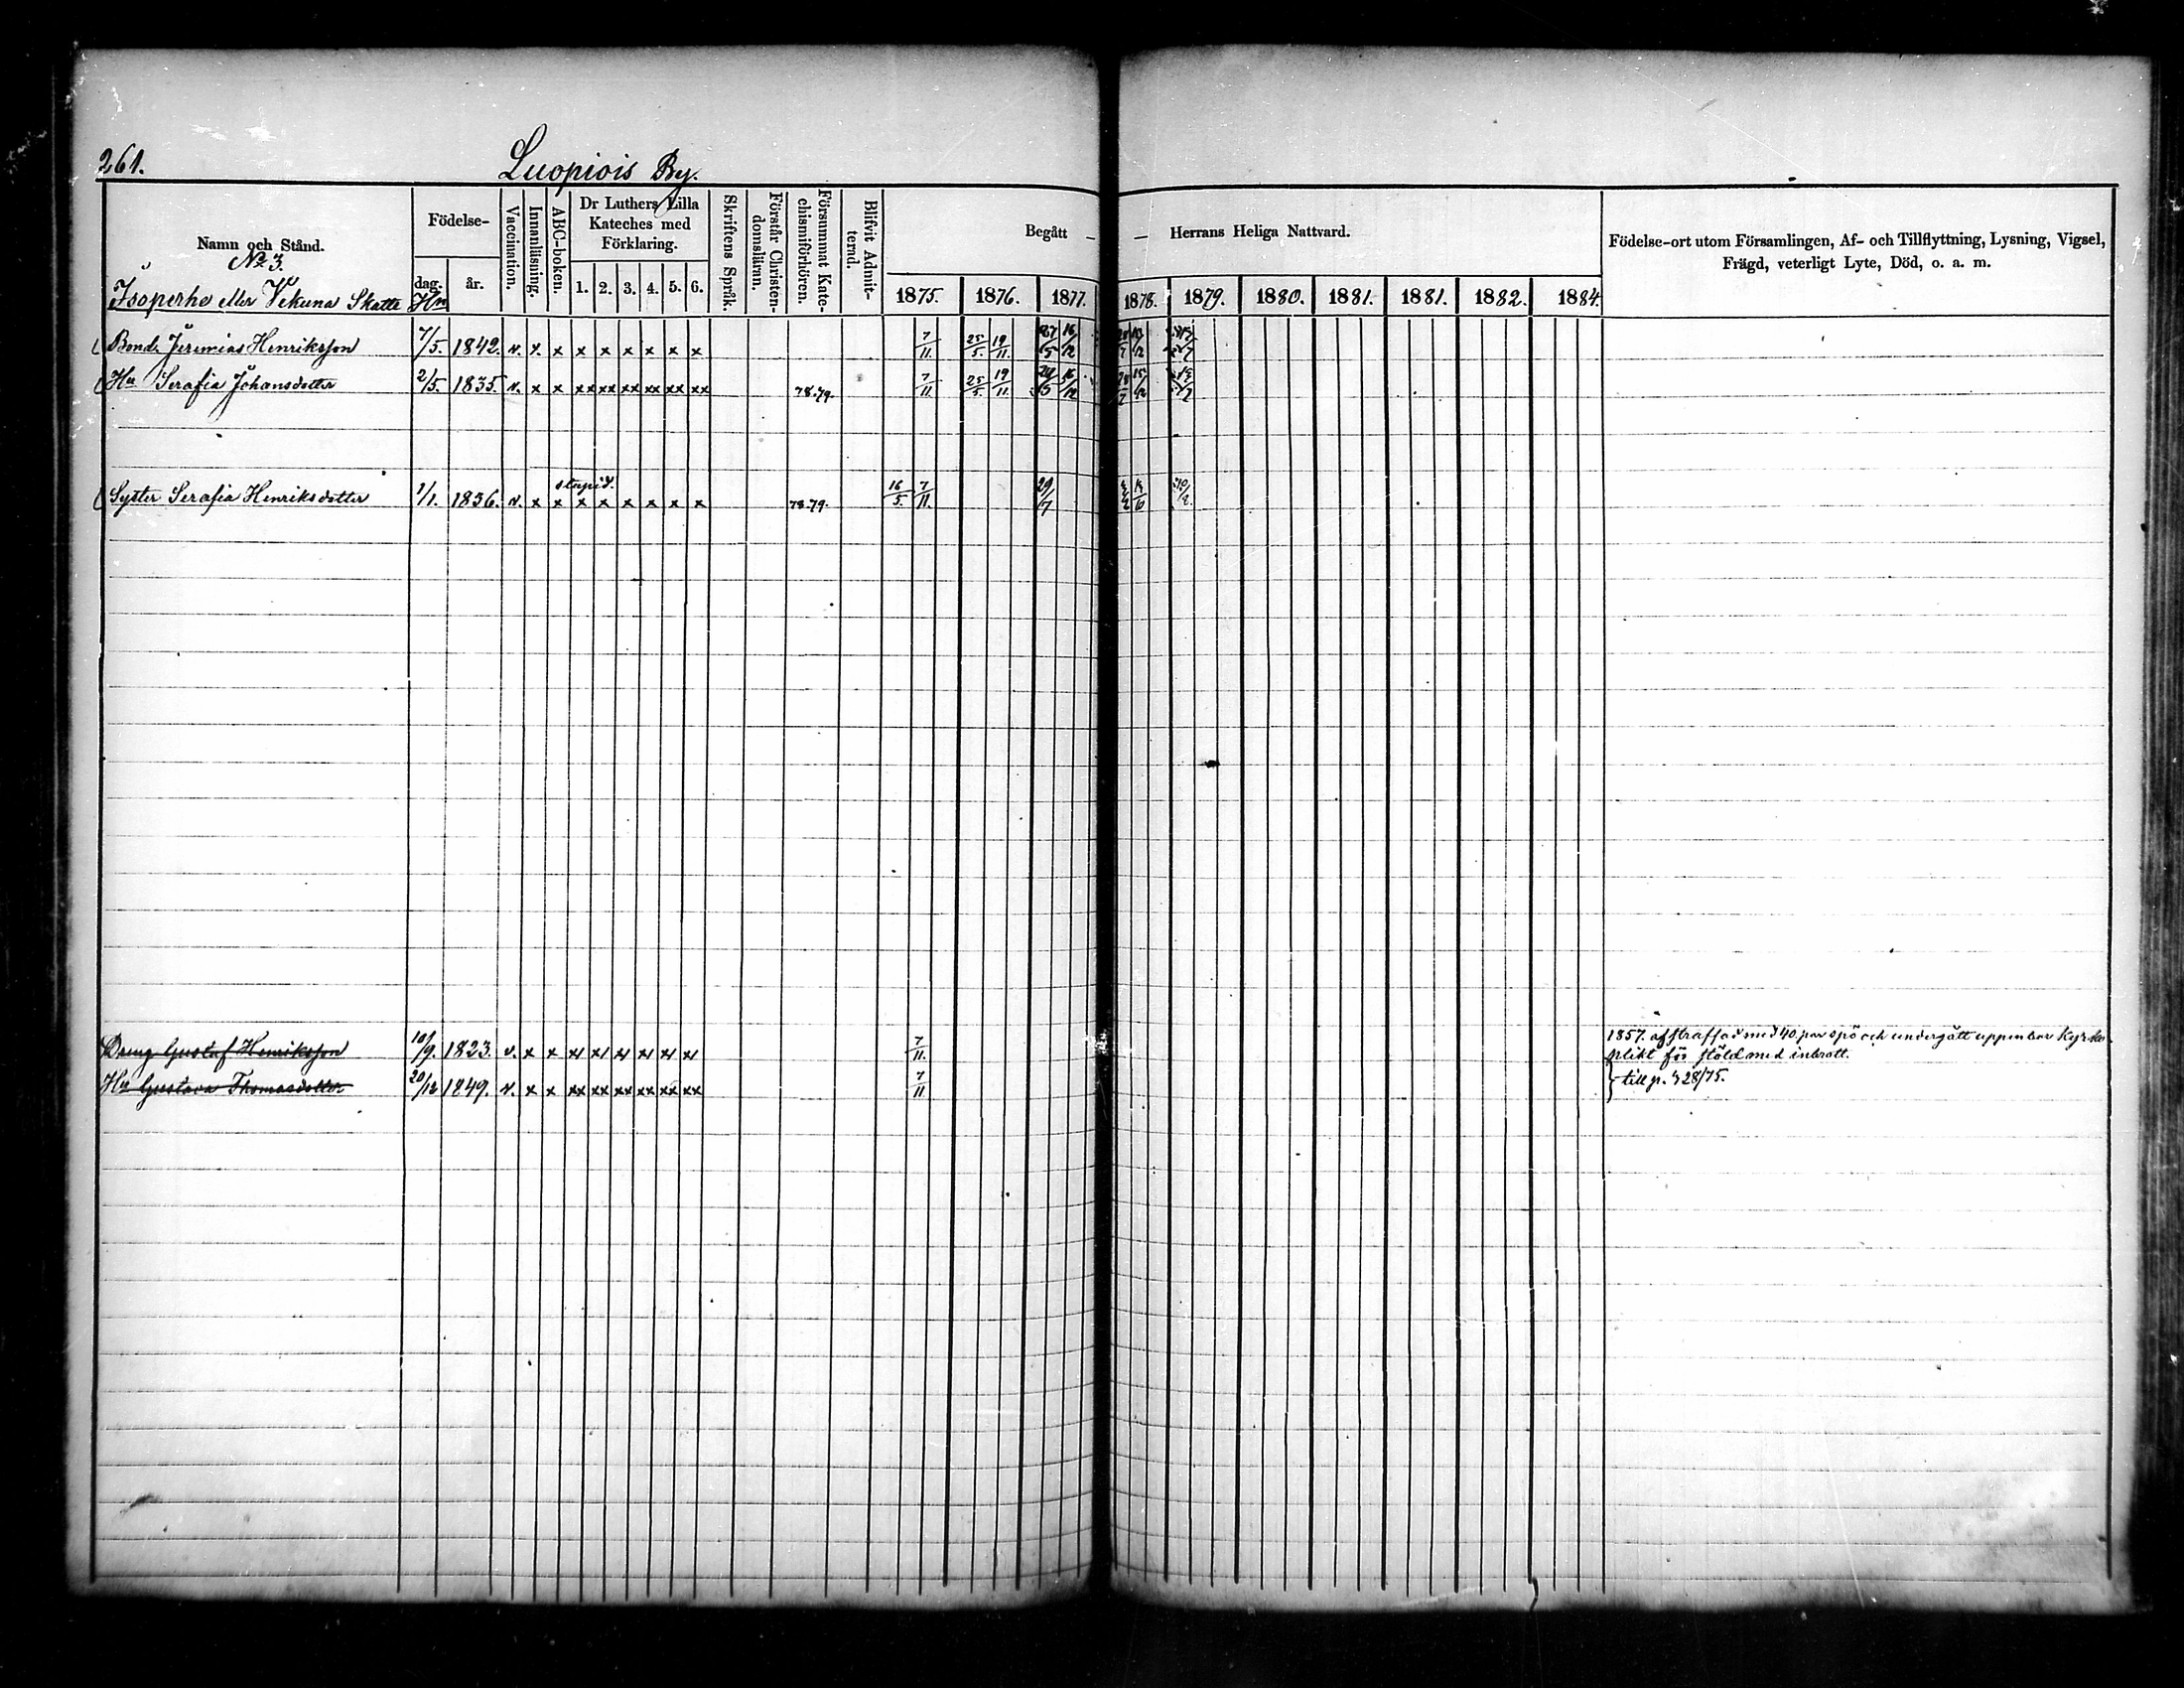 261.
Luopiois By.
Namn och Stånd.
No 3.
Isoperhe eller Vekuna Skatte Hn
Födelse-
dag.
år.
Vaccination.
Innanläsning.
ABC-boken.
Dr Luthers Lilla
Kateches med
Förklaring.
1. 2. 3. 4. 5. 6.
Skriftens Språk.
Förstår Christen-
domsläran.
Försummat Kate-
chismiförhören.
Blifvit Admit-
terad.
Begått — — Herrans Heliga Nattvard.
1875. 1876. 1877. 1878. 1879. 1880. 1881. 1881. 1882. 1884.
Födelse-ort utom Församlingen, Af- och Tillflyttning, Lysning, Vigsel,
Frägd, veterligt Lyte, Död, o. a. m.
Bond. Jeremias Henriksson 7/5. 1842. v. x x x x x x x x 7/11 25/5. 19/11. 27/5 16/12
Hu Serafia Johansdotter 2/5. 1835. v. x x xx xx xx xx xx xx 78.79. 7/11 25/5. 19/11 16/12
stupid.
Syster Serafia Henriksdotter 1/1. 1836. v. x x x x x x x x 78.79. 16/5. 7/11. 29/7
Dreng Gustaf Henriksson 10/9. 1823. v. x x 7/11. 1857. afstraffad med 40 par spö och undergått uppenbar Kyrko-
plikt för stöld med inbrott.
Hu Gustava Thomasdotter 20/12 1849. v. x x xx xx xx xx xx xx 7/11 till p. 328/75.